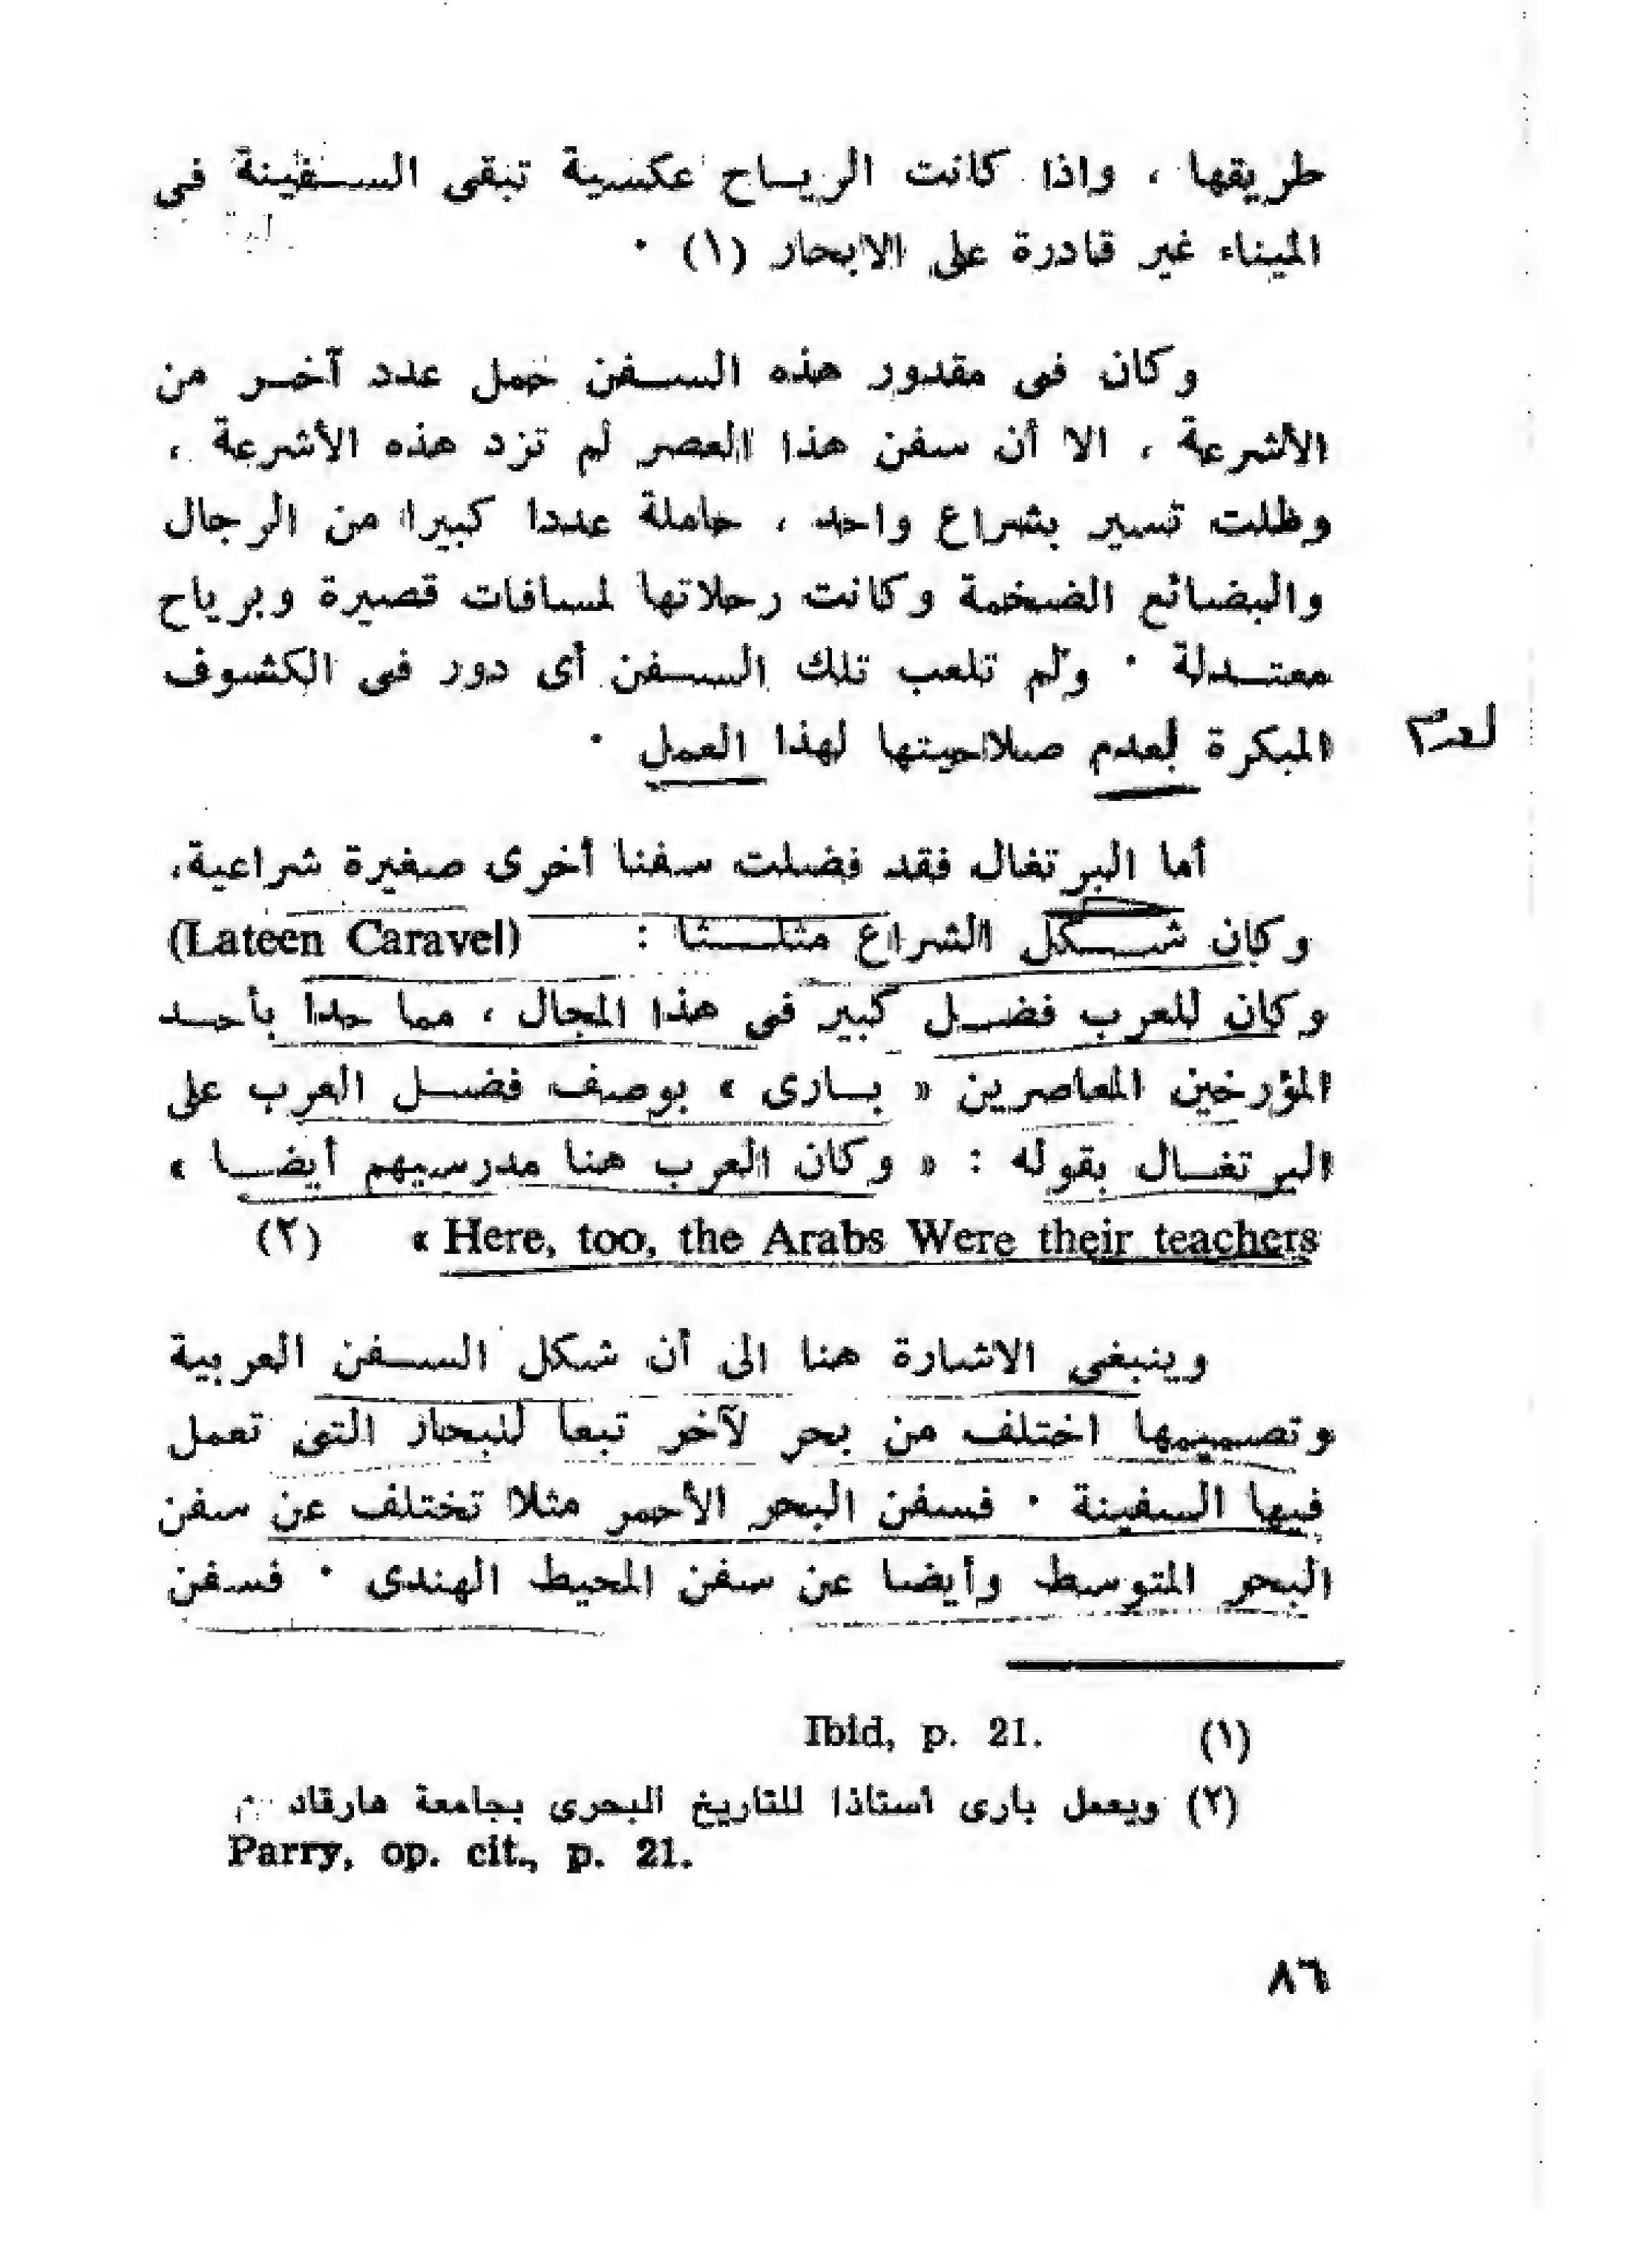 طريقها ، واذا كانت الرياح عكسية تبقى السفينة فى
الميناء غير قادرة على الابحار (١) ·
وكان فى مقدور هذه السفن حمل عدد آخر من
الأشرعة ، الا أن سفن هذا العصر لم تزد هذه الأشرعة ،
وظلت تسير بشراع واحد ، حاملة عددا كبيرا من الرجال
والبضائع الضخمة وكانت رحلاتها لمسافات قصيرة وبرياح
معتدلة · ولم تلعب تلك السفن أى دور فى الكشوف
المبكرة لعدم صلاحيتها لهذا العمل ·
لعدم
أما البرتغال فقد فضلت سفنا أخرى صغيرة شراعية،
وكان شكل الشراع مثلثا : (Lateen Caravel)
وكان للعرب فضل كبير فى هذا المجال ، مما حدا بأحد
المؤرخين المعاصرين « بارى » بوصف فضل العرب على
البرتغال بقوله : « وكان العرب هنا مدرسيهم أيضا »
« Here, too, the Arabs Were their teachers (٢)
وينبغى الاشارة هنا الى أن شكل السفن العربية
وتصميمها اختلف من بحر لآخر تبعا للبحار التى تعمل
فيها السفينة · فسفن البحر الأحمر مثلا تختلف عن سفن
البحر المتوسط وأيضا عن سفن المحيط الهندى · فسفن
(١) Ibid, p. 21.
(٢) ويعمل بارى استاذا للتاريخ البحرى بجامعة هارقاد
Parry, op. cit., p. 21.
٨٦